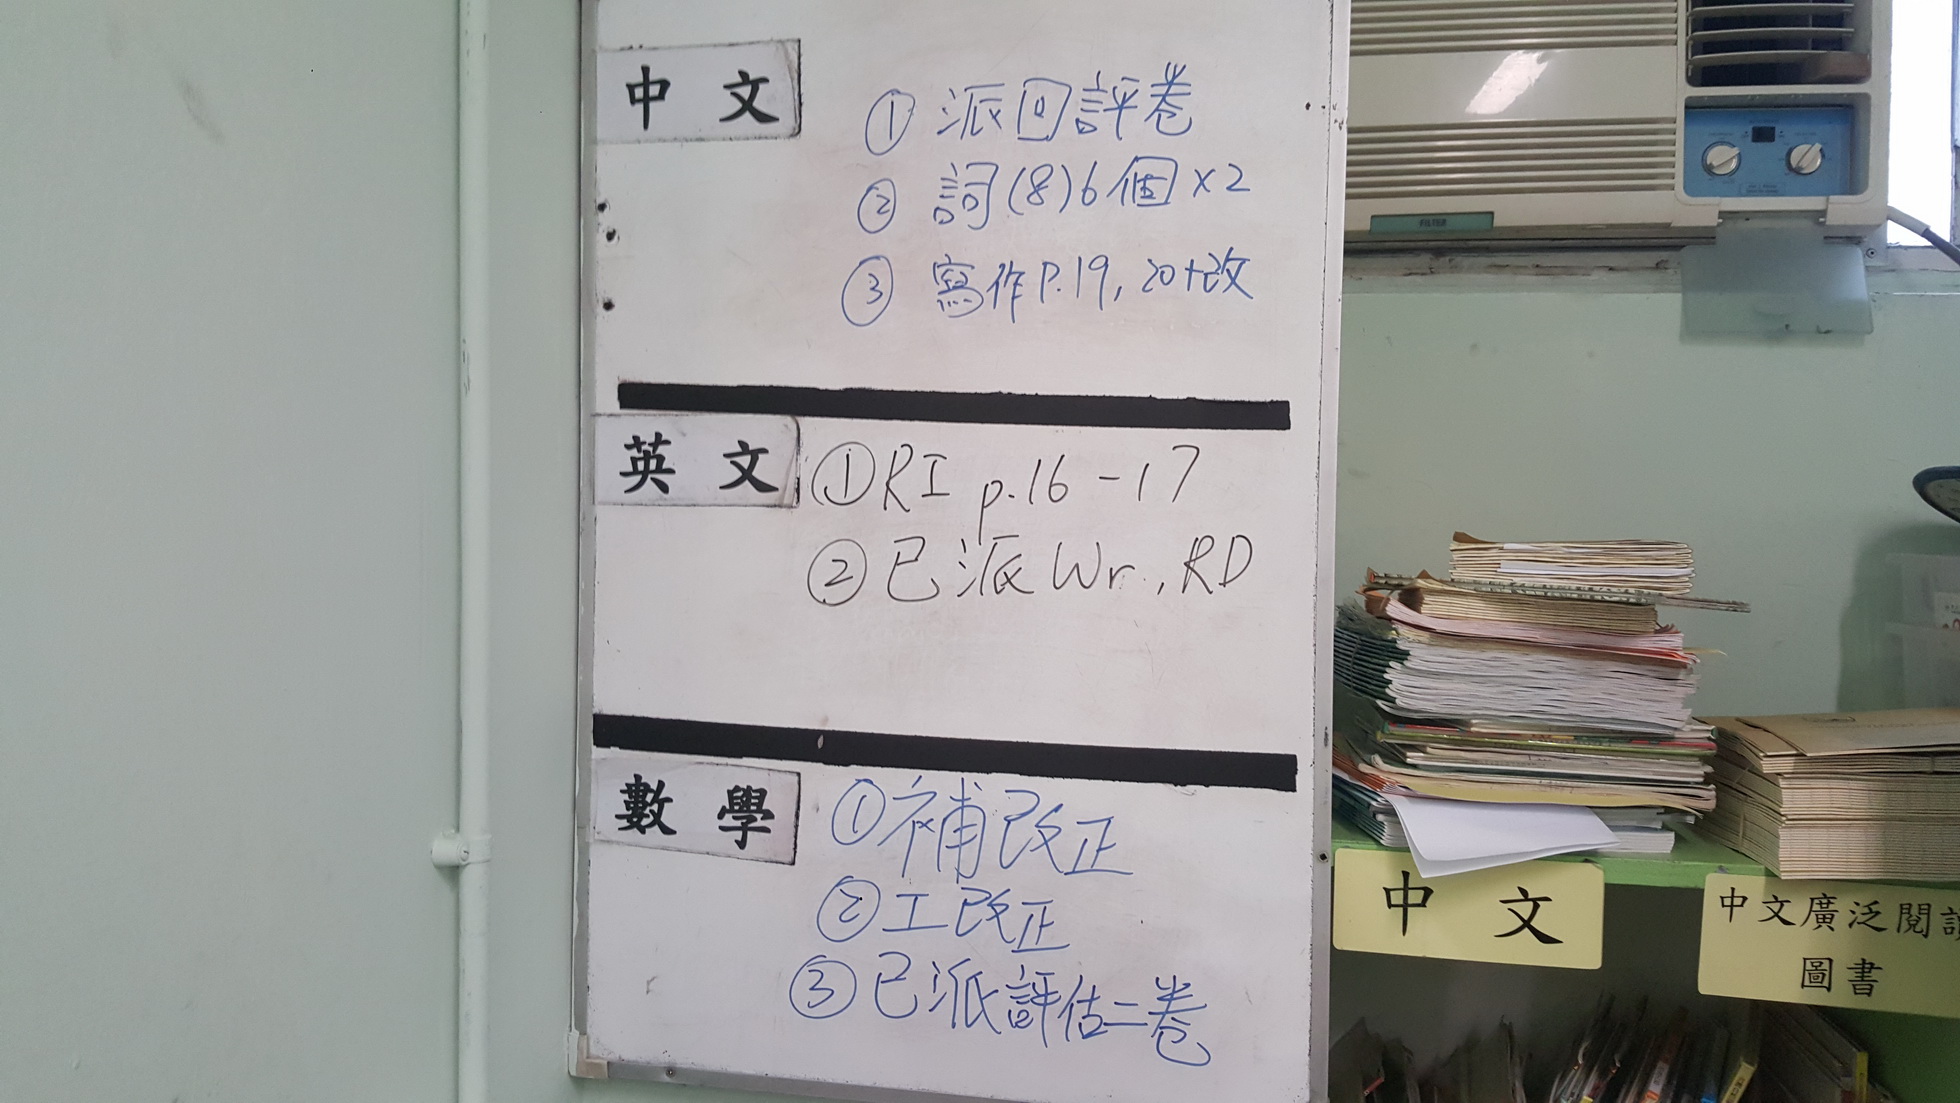 中文
① 派回評卷
② 詞(8)6個×2
③ 寫作P.19, 20+改
英文
① RI p.16-17
② 已派 Wr., RD
數學
① 補改正
② 工改正
③ 已派評估二卷
FILTER
中文
中文廣泛閱讀
圖書